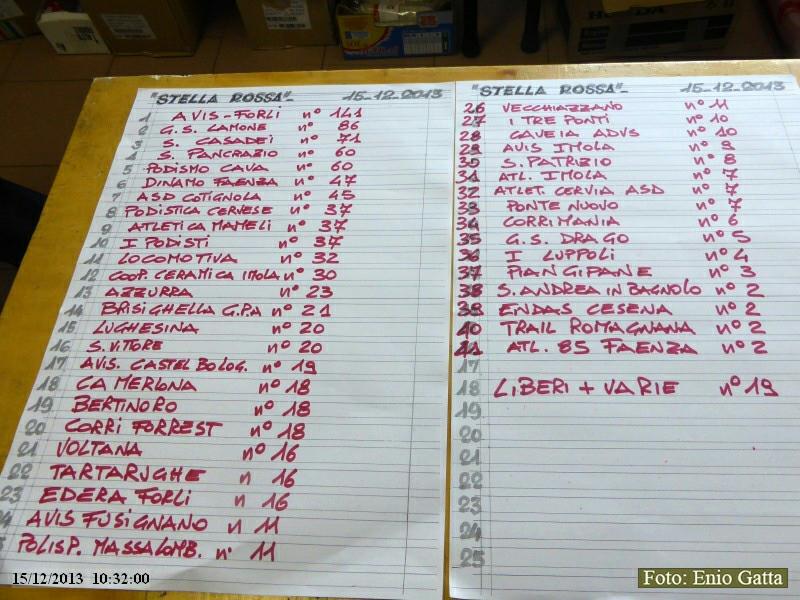 "STELLA ROSSA"- 15-12-2013
1 AVIS-FORLI n° 141
2 G.S. LAMONE n° 86
3 S. CASADEI n° 71
4 S. PANCRAZIO n° 60
5 PODISMO CAVA n° 60
6 DINAMO FAENZA n° 47
7 ASD COTIGNOLA n° 45
8 PODISTICA CERVESE n° 37
9 ATLETICA MAMELI n° 37
10 I PODISTI n° 37
11 LOCOMOTIVA n° 32
12 COOP. CERAMICA IMOLA n° 30
13 AZZURRA n° 23
14 BRISIGHELLA G.P.A n° 21
15 LUGHESINA n° 20
16 S. VITORE n° 20
17 AVIS. CASTEL BOLOG. n° 19
18 CAMERLONA n° 18
19 BERTINORO n° 18
20 CORRI FORREST n° 18
21 VOLTANA n° 16
22 TARTARUGHE n 16
23 EDERA FORLI n 16
4 AVIS FUSIGNANO n 11
POLISP. MASSALOMB. n° 11
"STELLA ROSSA"- 15-12-2013
26 VECCHIAZZANO n° 11
27 I TRE PONTI n° 10
28 CAVEIA ADVS n° 10
29 AVIS IMOLA n° 9
30 S. PATRIZIO n° 8
31 ATL. IMOLA n° 7
32 ATLET. CERVIA ASD n° 7
33 PONTE NUOVO n° 7
34 CORRIMANIA n° 6
35 G.S. DRAGO n° 5
36 I LUPPOLI n° 4
37 PIANGIPANE n° 3
38 S. ANDREA IN BAGNOLO n° 2
39 ENDAS CESENA n° 2
40 TRAIL ROMAGNANA n° 2
41 ATL. 85 FAENZA n° 2
17
18 LIBERI + VARIE n° 19
19
20
21
22
23
24
25
15/12/2013 10:32:00
Foto: Enio Gatta